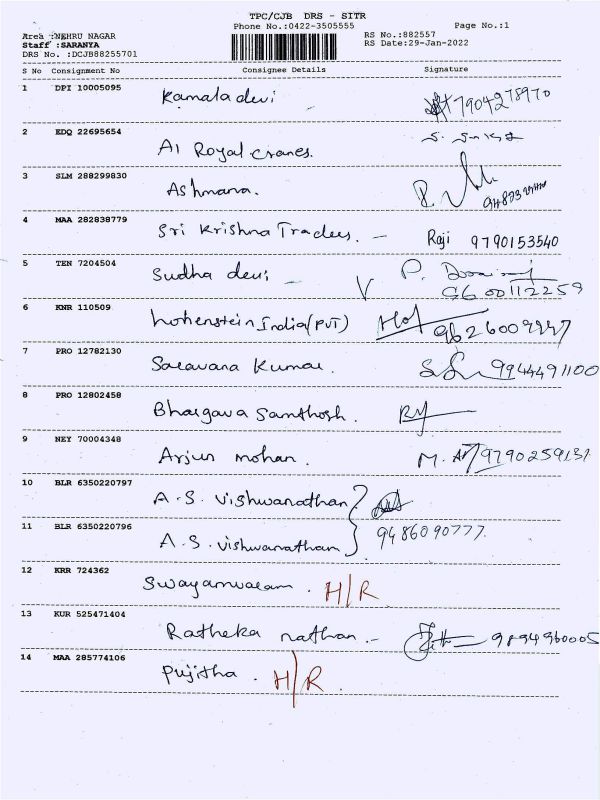 TPC/CJB DRS - SITR
Phone No.:0422-3505555 Page No.:1
Area :NEHRU NAGAR RS No.:882557
Staff :SARANYA RS Date:29-Jan-2022
DRS No. :DCJB88255701
S No Consignment No Consignee Details Signature
1 DPI 10005095 Kamala devi 7904278970
2 EDQ 22695654 A1 Royal cranes.
3 SLM 288299830 Ashmana.
4 MAA 282838779 Sri Krishna Traders. - Raji 9790153540
5 TEN 7204504 Sudha devi - P. 9600112259
6 KNR 110509 hohenstein India (PVT)
7 PRO 12782130 Saravana Kumar. 9944491100
8 PRO 12802458 Bhargava Santhosh.
9 NEY 70004348 Arjun mohan. 9790259131
10 BLR 6350220797 A.S. Vishwanathan
11 BLR 6350220796 A.S. vishwanatham 9486090777.
12 KRR 724362 Swayamvaram. H/R
13 KUR 525471404 Ratheka nathan. - 9894960005
14 MAA 285774106 Pujitha. H/R.